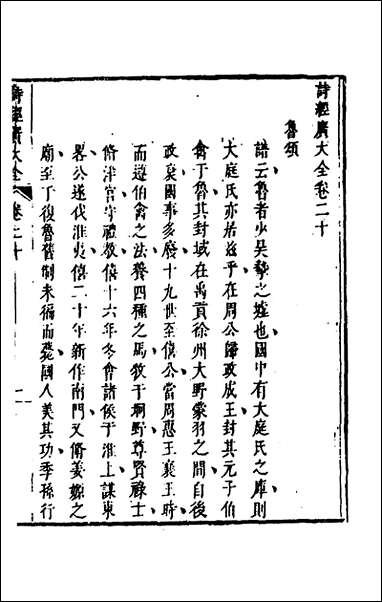 詩經廣大全卷二十
魯頌
譜云魯者少昊摯之墟也國中有大庭氏之庫則
大庭氏亦居茲乎在周公歸政成王封其元子伯
禽于魯其封域在禹貢徐州大野蒙羽之間自後
政衰國事多廢十九世至僖公當周惠王襄王時
而遵伯禽之法養四種之馬牧于坰野尊賢祿士
脩泮宮守禮教僖十六年冬會諸侯于淮上謀東
畧公遂伐淮夷僖二十年新作南門又脩姜嫄之
廟至于復魯舊制未徧而薨國人美其功季孫行
詩經廣大全 卷二十 一